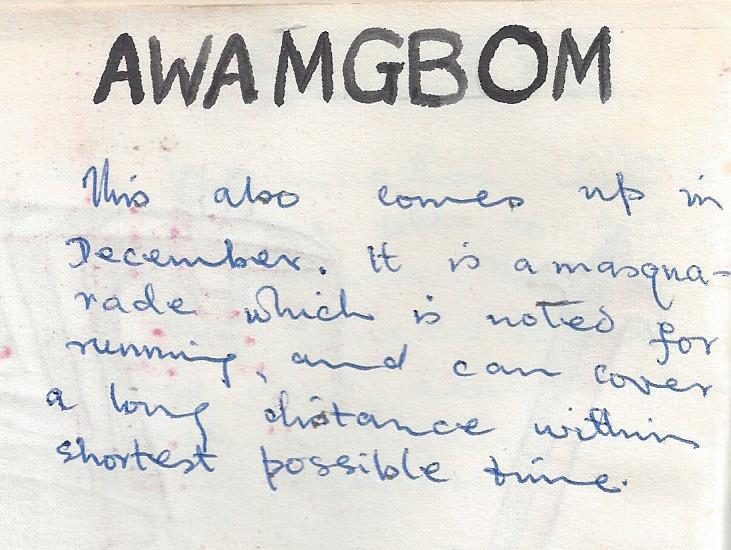 AWAMGBOM
This also comes up in
December. It is a masqua-
rade which is noted for
running, and can cover
a long distance within
shortest possible time.